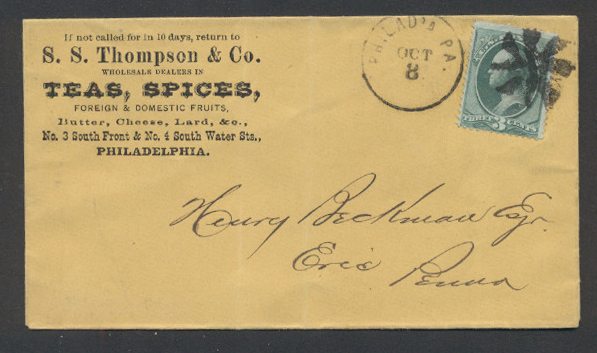 If not called for in 10 days, return to
S. S. Thompson & Co.
WHOLESALE DEALERS IN
TEAS, SPICES,
FOREIGN & DOMESTIC FRUITS,
Butter, Cheese, Lard, &c.,
No. 3 South Front & No. 4 South Water Sts.,
PHILADELPHIA.
PHILAD'A PA.
OCT
8
THREE 3 CENTS
Henry Beckman Esqr.
Erie
Penna